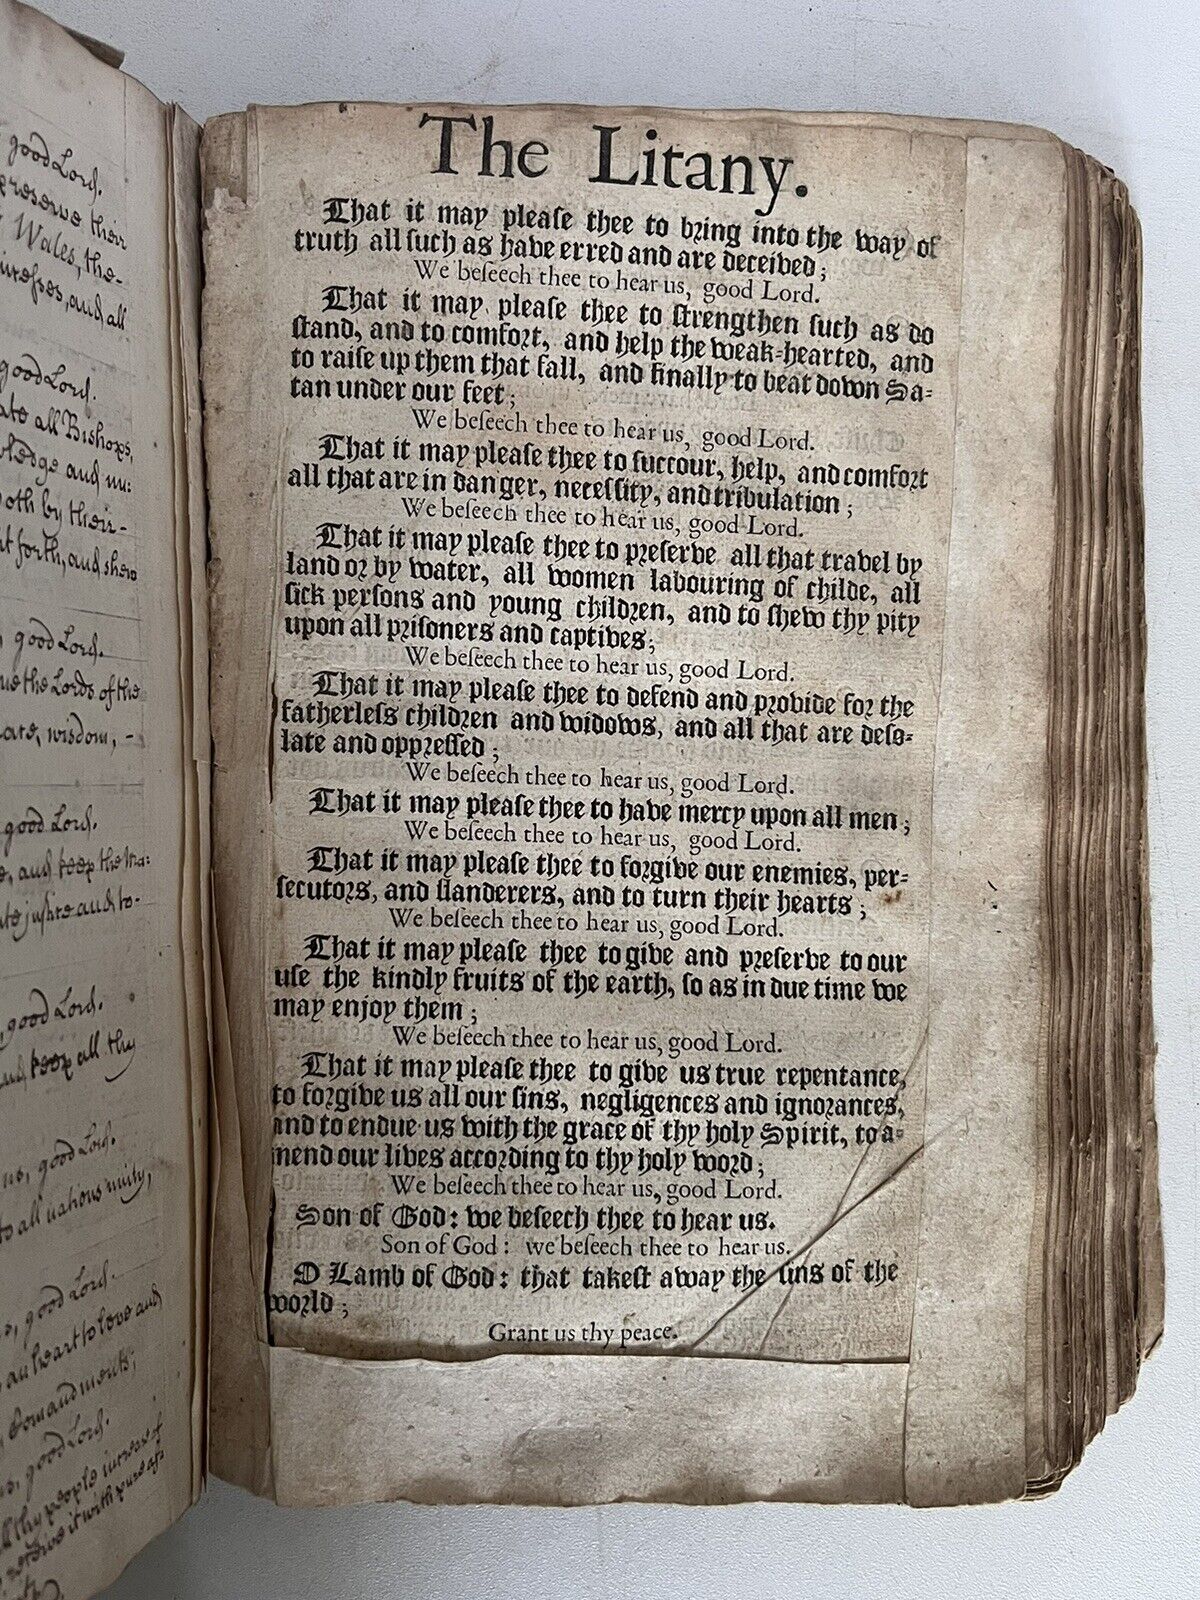 good Lord.
preserve their
Wales, the-
and all
good Lord.
all Bishops,
and un:
both by their-
forth, and shew
good Lord.
the Lords of the
wisdom, -
good Lord.
and keep the Ma:
and to-
good Lord.
keep all thy
us, good Lord.
to all nations unity,
good Lord.
an heart to love and
Commandments;
good Lord.
thy people increase of
receive it with pure af:
The Litany.
That it may pleaſe thee to bring into the way of
truth all ſuch as have erred and are deceived;
We beſeech thee to hear us, good Lord.
That it may pleaſe thee to ſtrengthen ſuch as do
ſtand, and to comfort, and help the weak-hearted, and
to raiſe up them that fall, and finally to beat down Sa-
tan under our feet;
We beſeech thee to hear us, good Lord.
That it may pleaſe thee to ſuccour, help, and comfort
all that are in danger, neceſſity, and tribulation;
We beſeech thee to hear us, good Lord.
That it may pleaſe thee to preſerve all that travel by
land or by water, all women labouring of childe, all
ſick perſons and young children, and to ſhew thy pity
upon all priſoners and captives;
We beſeech thee to hear us, good Lord.
That it may pleaſe thee to defend and provide for the
fatherleſs children and widows, and all that are deſo-
late and oppreſſed;
We beſeech thee to hear us, good Lord.
That it may pleaſe thee to have mercy upon all men;
We beſeech thee to hear us, good Lord.
That it may pleaſe thee to forgive our enemies, per-
ſecutors, and ſlanderers, and to turn their hearts;
We beſeech thee to hear us, good Lord.
That it may pleaſe thee to give and preſerve to our
uſe the kindly fruits of the earth, ſo as in due time we
may enjoy them;
We beſeech thee to hear us, good Lord.
That it may pleaſe thee to give us true repentance,
to forgive us all our ſins, negligences and ignorances,
and to endue us with the grace of thy holy Spirit, to a-
mend our lives according to thy holy word;
We beſeech thee to hear us, good Lord.
Son of God: we beſeech thee to hear us.
Son of God: we beſeech thee to hear us.
O Lamb of God: that takeſt away the ſins of the
world;
Grant us thy peace.